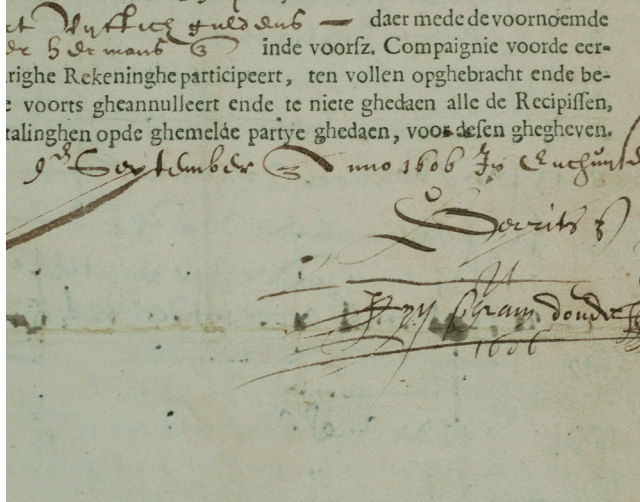 et vyftich guldens — daer mede de voornoemde
der hermans inde voorsz. Compaignie voorde eer-
righe Rekeninghe participeert, ten vollen opghebracht ende be-
e voorts gheannulleert ende te niete ghedaen alle de Recipissen,
talinghen opde ghemelde partye ghedaen, voor desen ghegheven.
9en September Anno 1606 In Enchuyse
Gerrits
1606